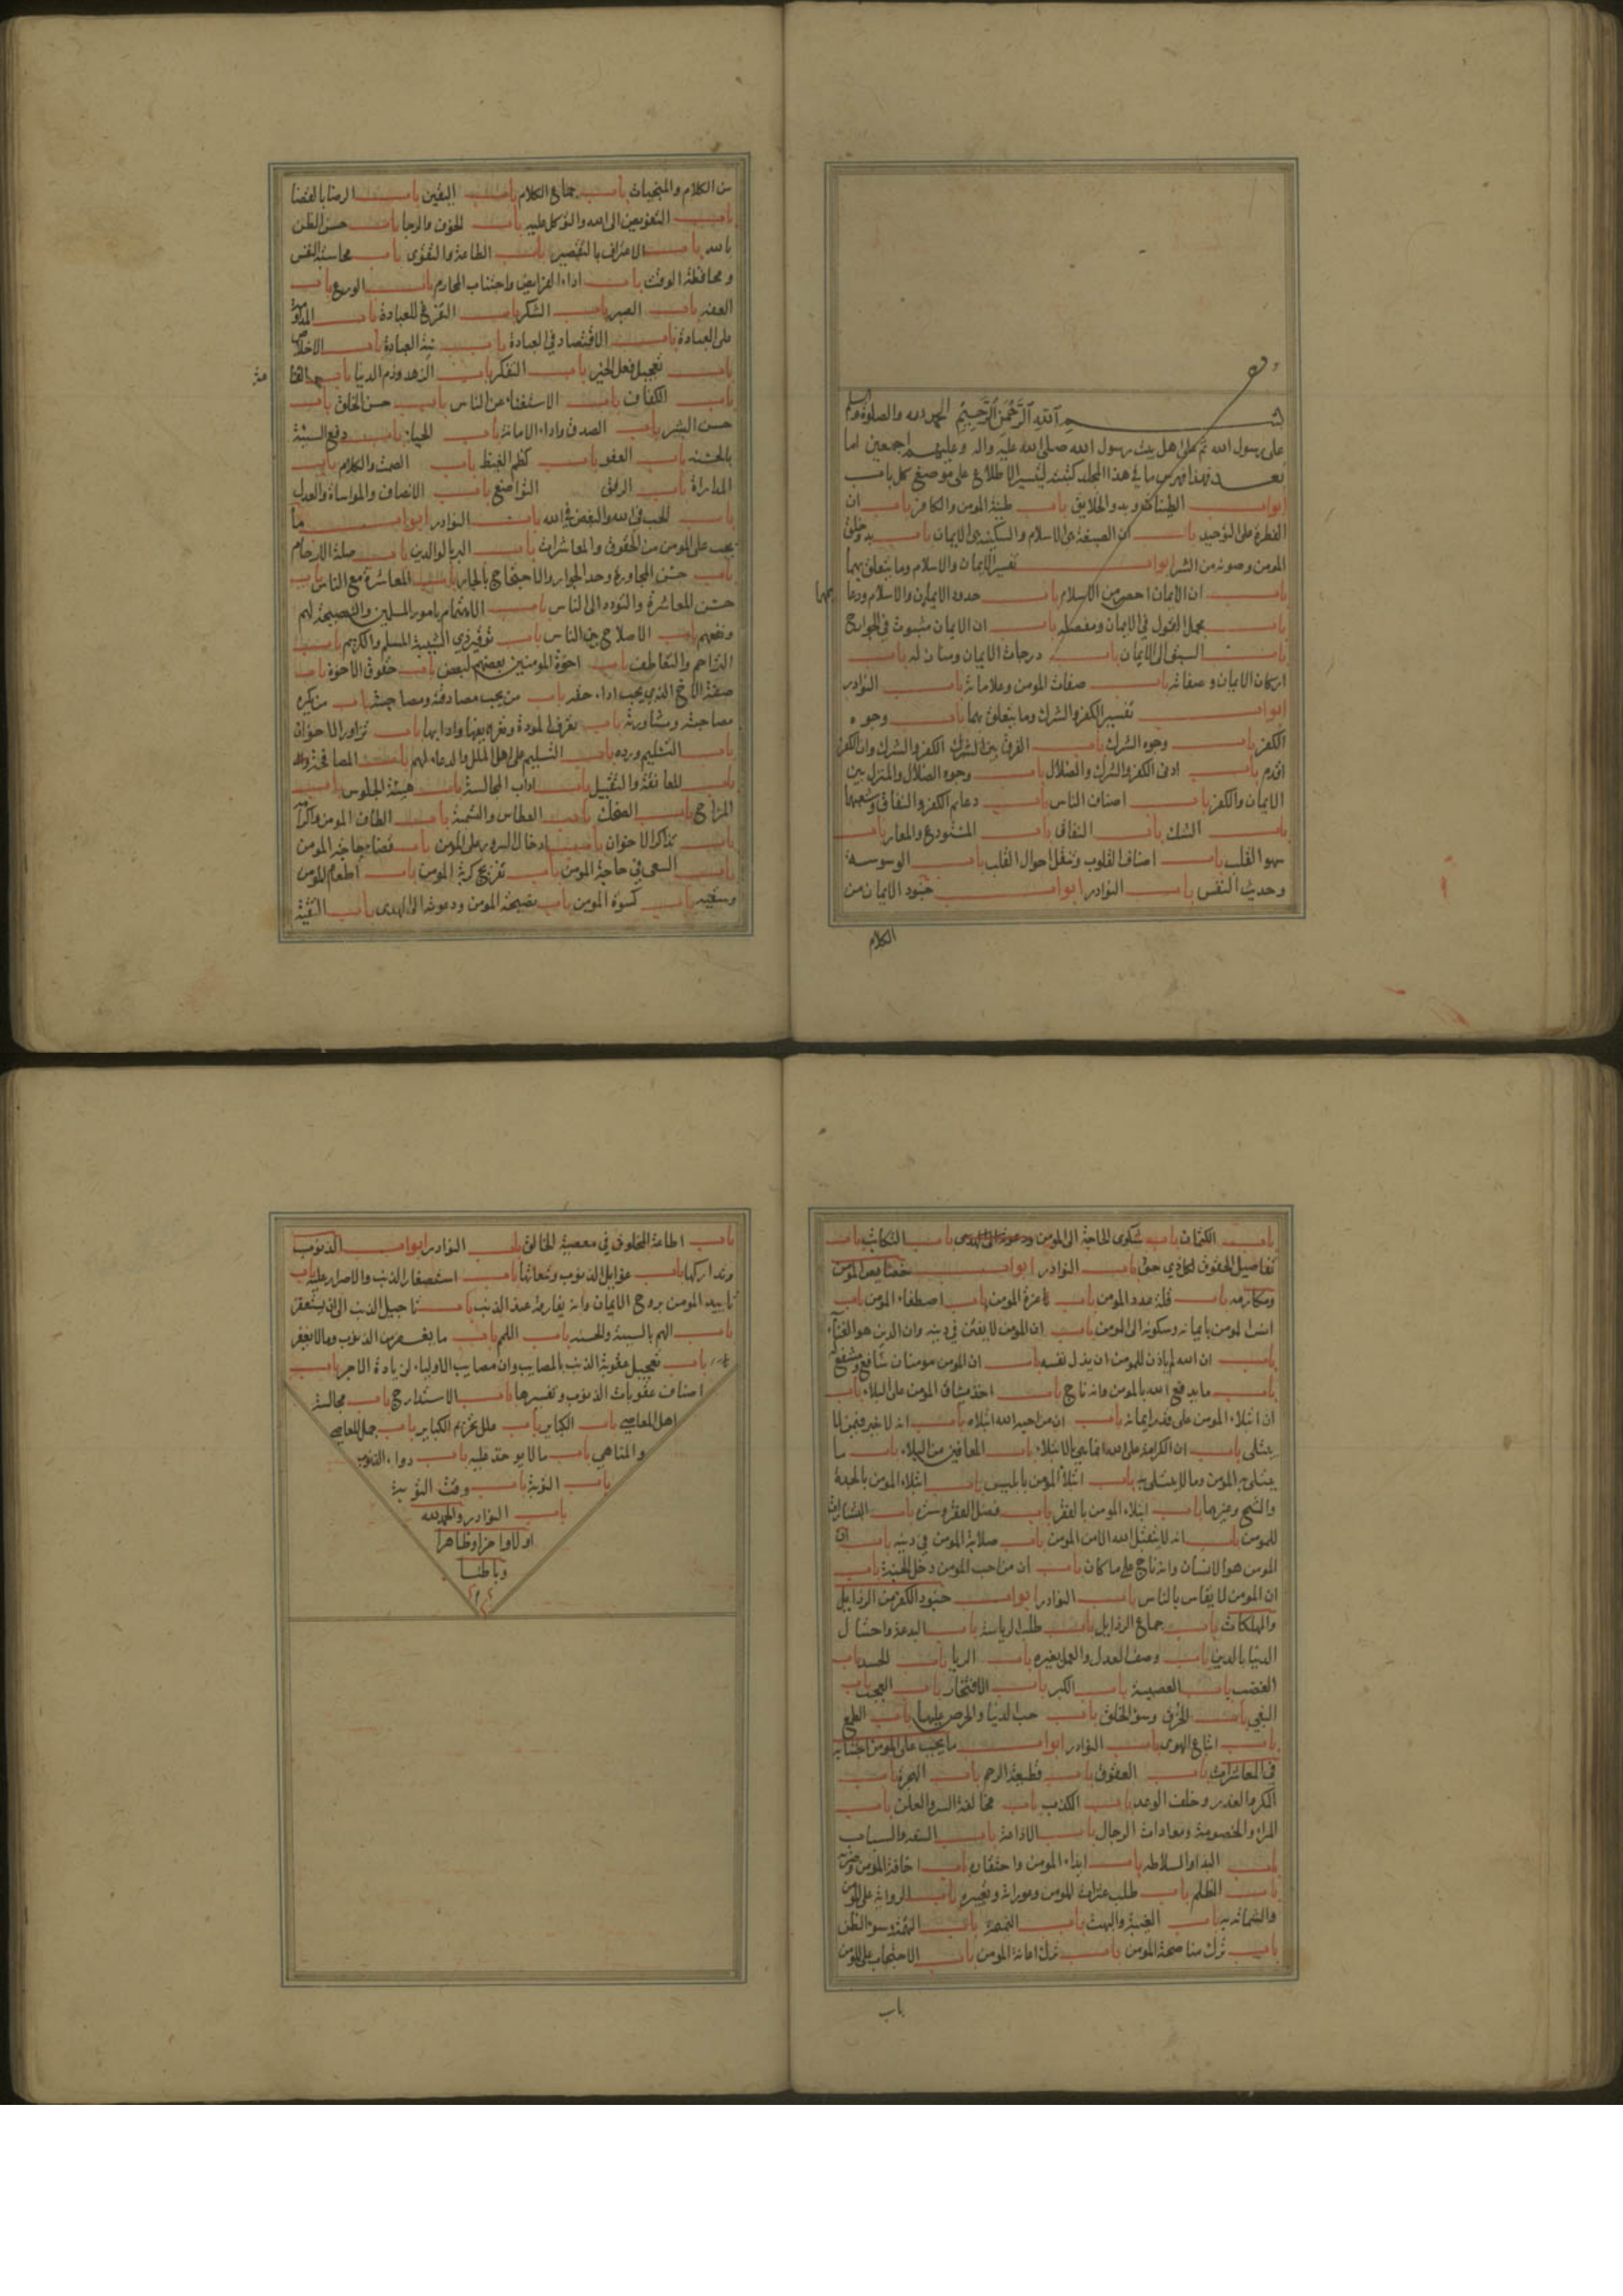 بسم الله الرحمن الرحيم الحمد لله والصلوة والسلم
على رسول الله ثم على اهل بيت رسول الله صلى الله عليه واله وعليهم اجمعين اما
بعد فهذا فهرس ما في هذا المجلد كتبته ليتيسر الاطلاع على موضع كل باب
ابواب الطينات وبدو الخلايق باب طينة المومن والكافر باب ان
الفطرة على التوحيد باب ان الصبغة هي الاسلام والسكينة هي الايمان باب بدو خلق
المومن وصونه من الشر ابواب تفسير الايمان والاسلام وما يتعلق بهما
باب ان الايمان اخص من الاسلام باب حدود الايمان والاسلام ودعا يمهما
باب مجمل القول في الايمان ومفصله باب ان الايمان مبثوث في الجوارح
باب السبق الى الايمان باب درجات الايمان ومنازله باب
اركان الايمان وصفاته باب صفات المومن وعلاماته باب النوادر
ابواب تفسير الكفر والشرك وما يتعلق بهما باب وجوه
الكفر باب وجوه الشرك باب الفرق بين الشرك الكفر والشرك وان الكفر
اقدم باب ادنى الكفر والشرك والضلال باب وجوه الضلال والمنزل بين
الايمان والكفر باب اصناف الناس باب دعايم الكفر والنفاق وشعبهما
باب الشك باب النفاق باب المستودع والمعار باب
سهو القلب باب اصناف القلوب وتنقل احوال القلب باب الوسوسة
وحديث النفس باب النوادر ابواب جنود الايمان من
الكلام
من الكلام والمنجيات باب جماع الكلام باب اليقين باب الرضا بالقضا
باب التفويض الى الله والتوكل عليه باب الخوف والرجا باب حسن الظن
بالله باب الاعتراف بالتقصير باب الطاعة والتقوى باب محاسبة النفس
ومحافظة الوقت باب اداء الفرايض واجتناب المحارم باب الورع باب
العفه باب الصبر باب الشكر باب التفرغ للعبادة باب المداومة
على العبادة باب الاقتصاد في العبادة باب نية العبادة باب الاخلاص
باب تعجيل فعل الخير باب التفكر باب الزهد وذم الدنيا باب
باب الكفاف باب الاستغناء عن الناس باب حسن الخلق باب
حسن البشر باب الصدق واداء الامانة باب الحياء باب دفع السيئة
بالحسنه باب العفو باب كظم الغيظ باب الصمت والكلام باب
المداراة باب الرفق التواضع باب الانصاف والمواساة والعدل
باب الحب في الله والبغض في الله باب النوادر ابواب ما
يجب على المومن من الحقوق والمعاشرات باب البر بالوالدين باب صلة الارحام
باب حسن المجاورة وحد الجوار والاحتجاج بالجار باب المعاشرة مع الناس باب
حسن المعاشرة والتودد الى الناس باب الاهتمام بامور المسلمين والنصيحة لهم
ونفعهم باب الاصلاح بين الناس باب توقير ذي الشيبة المسلم والكريم باب
التراحم والتعاطف باب اخوة المومنين بعضهم لبعض باب حقوق الاخوة باب
صفة الاخ الذي يجب اداء حقه باب من يجب مصادقته ومصاحبته باب من يكره
مصاحبته ومشاورته باب تعرف المودة وتعريفها وادابها باب تزاور الاخوان
باب التسليم ورده باب التسليم على اهل الملل والدعاء لهم باب المصافحة
باب المعانقة والتقبيل باب اداب المجالسة باب هيئة الجلوس باب
المزاح باب الضحك باب العطاس والتسمية باب الطاف المومن واكرامه
باب تذاكر الاخوان باب ادخال السرور على المومن باب قضاء حاجة المومن
باب السعى في حاجة المومن باب تفريج كربة المومن باب اطعام المومن
وسقيه باب كسوة المومن باب نصيحة المومن ودعوته الى الهدى باب التقية
باب الكتمان باب شكوى الحاجة الى المومن ودعوته الى الهدى باب التكاتب باب
تفاصيل الحقوق لكل ذي حق باب النوادر ابواب خصايص المومن
ومكارمه باب قلة عدد المومن باب عزة المومن باب اصطفاء المومن باب
انس المومن بايمانه وسكونه الى المومن باب ان المومن لا يفتن في دينه وان الدين هو الغناء
باب ان الله لم ياذن للمومن ان يذل نفسه باب ان المومن مومنان شافع ومشفع له
باب ما يدفع الله بالمومن وانه ناج باب اخذ ميثاق المومن على البلاء باب
ان ابتلاء المومن على قدر ايمانه باب ان من احبه الله ابتلاه باب انه لا خير فيمن لا
يبتلى باب ان الكرامة على الله انما هي بالابتلاء باب المعافين من البلاء باب ما
يبتلى به المومن وما لا يبتلى به باب ابتلاء المومن بابليس باب ابتلاء المومن بالحدة
والشح وغيرهما باب ابتلاء المومن بالفقر باب فضل الفقر وستره باب البشارات
للمومن باب انه لا يتقبل الله الا من المومن باب صلابة المومن في دينه باب ان
المومن هو الانسان وانه ناج على ما كان باب ان من احب المومن دخل الجنة باب
ان المومن لا يقاس بالناس باب النوادر ابواب جنود الكفر من الرذايل
والمهلكات باب جماع الرذايل باب طلب الرياسة باب البدعة واختتال
الدنيا بالدين باب وصف العدل والعمل بغيره باب الريا باب الحسد باب
الغضب باب العصبية باب الكبر باب الافتخار باب العجب باب
البغي باب الخرق وسوء الخلق باب حب الدنيا والحرص عليها باب الطمع
باب اتباع الهوى باب النوادر ابواب ما يجب على المومن اجتنابه
في المعاشرات باب العقوق باب قطيعة الرحم باب الهجرة باب
المكر والغدر وخلف الوعد باب الكذب باب مخالفة السر والعلن باب
المراء والخصومة ومعادات الرجال باب الاذاعة باب السفه والسباب
باب البذا والسلاطه باب ايذاء المومن واحتقاره باب اخافة المومن وضربه
باب الظلم باب طلب عثرات المومن وعوراته وتعييره باب الرواية على المومن
والشماته به باب الغيبة والبهت باب النميمة باب التهمة وسوء الظن
باب ترك مناصحة المومن باب ترك اعانة المومن باب الاحتجاب على المومن
باب
باب اطاعة المخلوق في معصية الخالق باب النوادر ابواب الذنوب
وتداركها باب غوايل الذنوب وتبعاتها باب استصغار الذنب والاصرار عليه باب
تاييد المومن بروح الايمان وانه يفارقه عند الذنب باب تاجيل الذنب الى ان يستغفر
باب الهم بالسيئة والحسنه باب اللمم باب ما يغفر من الذنوب وما لا يغفر
باب تعجيل عقوبة الذنب بالمصايب وان مصايب الاولياء لزيادة الاجر باب
اصناف عقوبات الذنوب وتفسيرها باب الاستدراج باب مجالسة
اهل المعاصي باب الكباير باب علل تحريم الكباير باب جمل المعاصي
والمناهي باب ما لا يوخذ عليه باب دواء الذنوب
باب التوبة باب وقت التوبة
باب النوادر والحمد لله
اولا واخرا وظاهرا
وباطنا